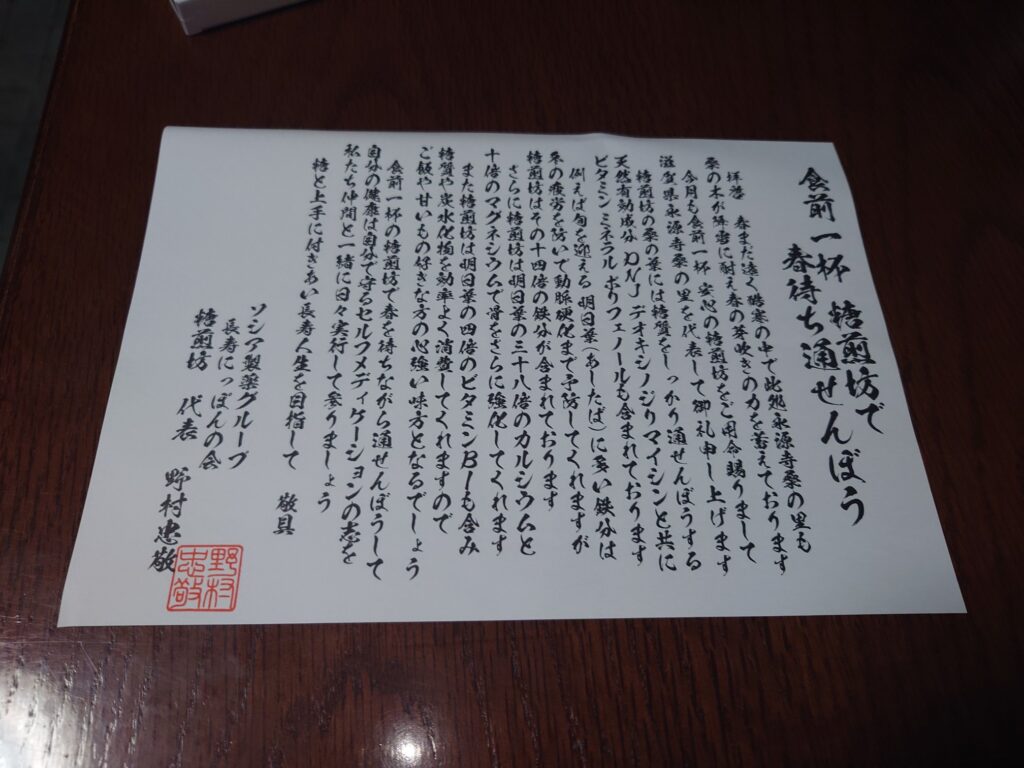 食前一杯 糖煎坊で
春待ち通せんぼう
拝啓 春まだ遠く酷寒の中で此処永源寺桑の里も
桑の木が降雪に耐え春の芽吹きの力を蓄えております
今月も食前一杯 安心の糖煎坊をご用命賜りまして
滋賀県永源寺桑の里を代表して御礼申し上げます
糖煎坊の桑の葉には糖質をしっかり通せんぼうする
天然有効成分 DNJ デオキシノジリマイシンと共に
ビタミン ミネラル ポリフェノールも含まれております
例えば旬を迎える 明日葉(あしたば)に多い鉄分は
冬の疲労を防いで動脈硬化まで予防してくれますが
糖煎坊はその十四倍の鉄分が含まれております
さらに糖煎坊は明日葉の三十八倍のカルシウムと
十倍のマグネシウムで骨をさらに強化してくれます
また糖煎坊は明日葉の四倍のビタミンB1も含み
糖質や炭水化物を効率よく消費してくれますので
ご飯や甘いもの好きな方の心強い味方となるでしょう
食前一杯の糖煎坊で春を待ちながら通せんぼうして
自分の健康は自分で守るセルフメディケーションの志を
私たち仲間と一緒に日々実行して参りましょう
糖と上手に付きあい長寿人生を目指して 敬具
ソシア製薬グループ
長寿にっぽんの会
糖煎坊 代表 野村忠敬
野村
忠敬